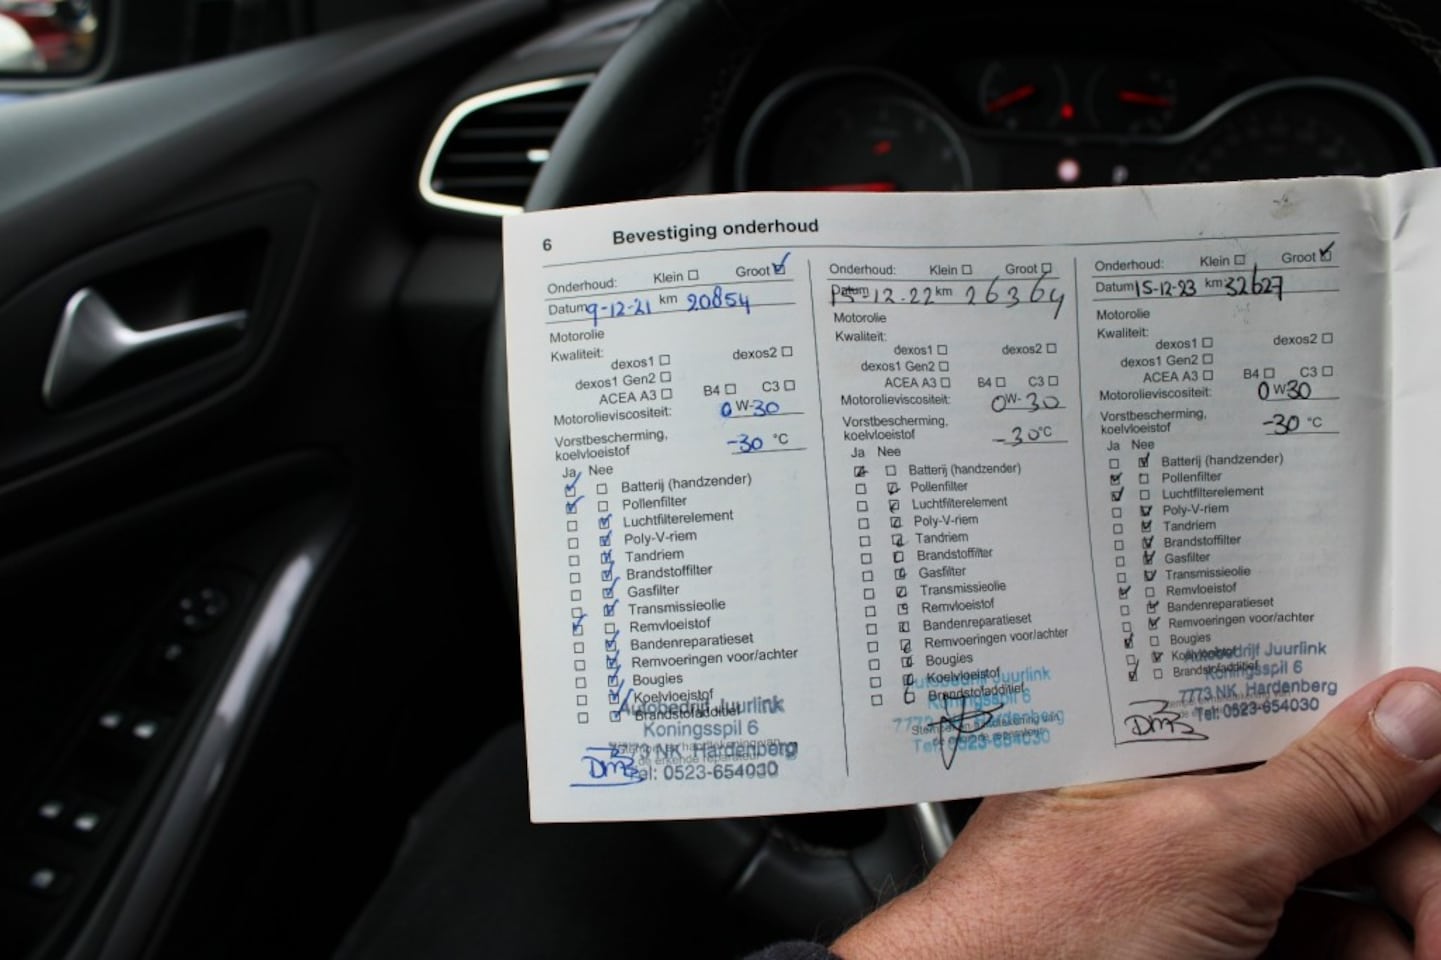 6 Bevestiging onderhoud
Onderhoud: Klein Groot
Datum 9-12-21 km 20854
Motorolie
Kwaliteit:
dexos1 dexos2
dexos1 Gen2
ACEA A3 B4 C3
Motorolieviscositeit: 0W-30
Vorstbescherming,
koelvloeistof -30 °C
Ja Nee
Batterij (handzender)
Pollenfilter
Luchtfilterelement
Poly-V-riem
Tandriem
Brandstoffilter
Gasfilter
Transmissieolie
Remvloeistof
Bandenreparatieset
Remvoeringen voor/achter
Bougies
Koelvloeistof
Brandstofadditief
Autobedrijf Juurlink
Koningsspil 6
7773 NK Hardenberg
Tel: 0523-654030
Onderhoud: Klein Groot
Datum 15-12-22 km 26364
Motorolie
Kwaliteit:
dexos1 dexos2
dexos1 Gen2
ACEA A3 B4 C3
Motorolieviscositeit: 0W-30
Vorstbescherming,
koelvloeistof -30°C
Ja Nee
Batterij (handzender)
Pollenfilter
Luchtfilterelement
Poly-V-riem
Tandriem
Brandstoffilter
Gasfilter
Transmissieolie
Remvloeistof
Bandenreparatieset
Remvoeringen voor/achter
Bougies
Koelvloeistof
Brandstofadditief
Autobedrijf Juurlink
Koningsspil 6
7773 NK Hardenberg
Tel: 0523-654030
Onderhoud: Klein Groot
Datum 15-12-23 km 32627
Motorolie
Kwaliteit:
dexos1 dexos2
dexos1 Gen2
ACEA A3 B4 C3
Motorolieviscositeit: 0W30
Vorstbescherming,
koelvloeistof -30 °C
Ja Nee
Batterij (handzender)
Pollenfilter
Luchtfilterelement
Poly-V-riem
Tandriem
Brandstoffilter
Gasfilter
Transmissieolie
Remvloeistof
Bandenreparatieset
Remvoeringen voor/achter
Bougies
Koelvloeistof
Brandstofadditief
Autobedrijf Juurlink
Koningsspil 6
7773 NK Hardenberg
Tel: 0523-654030